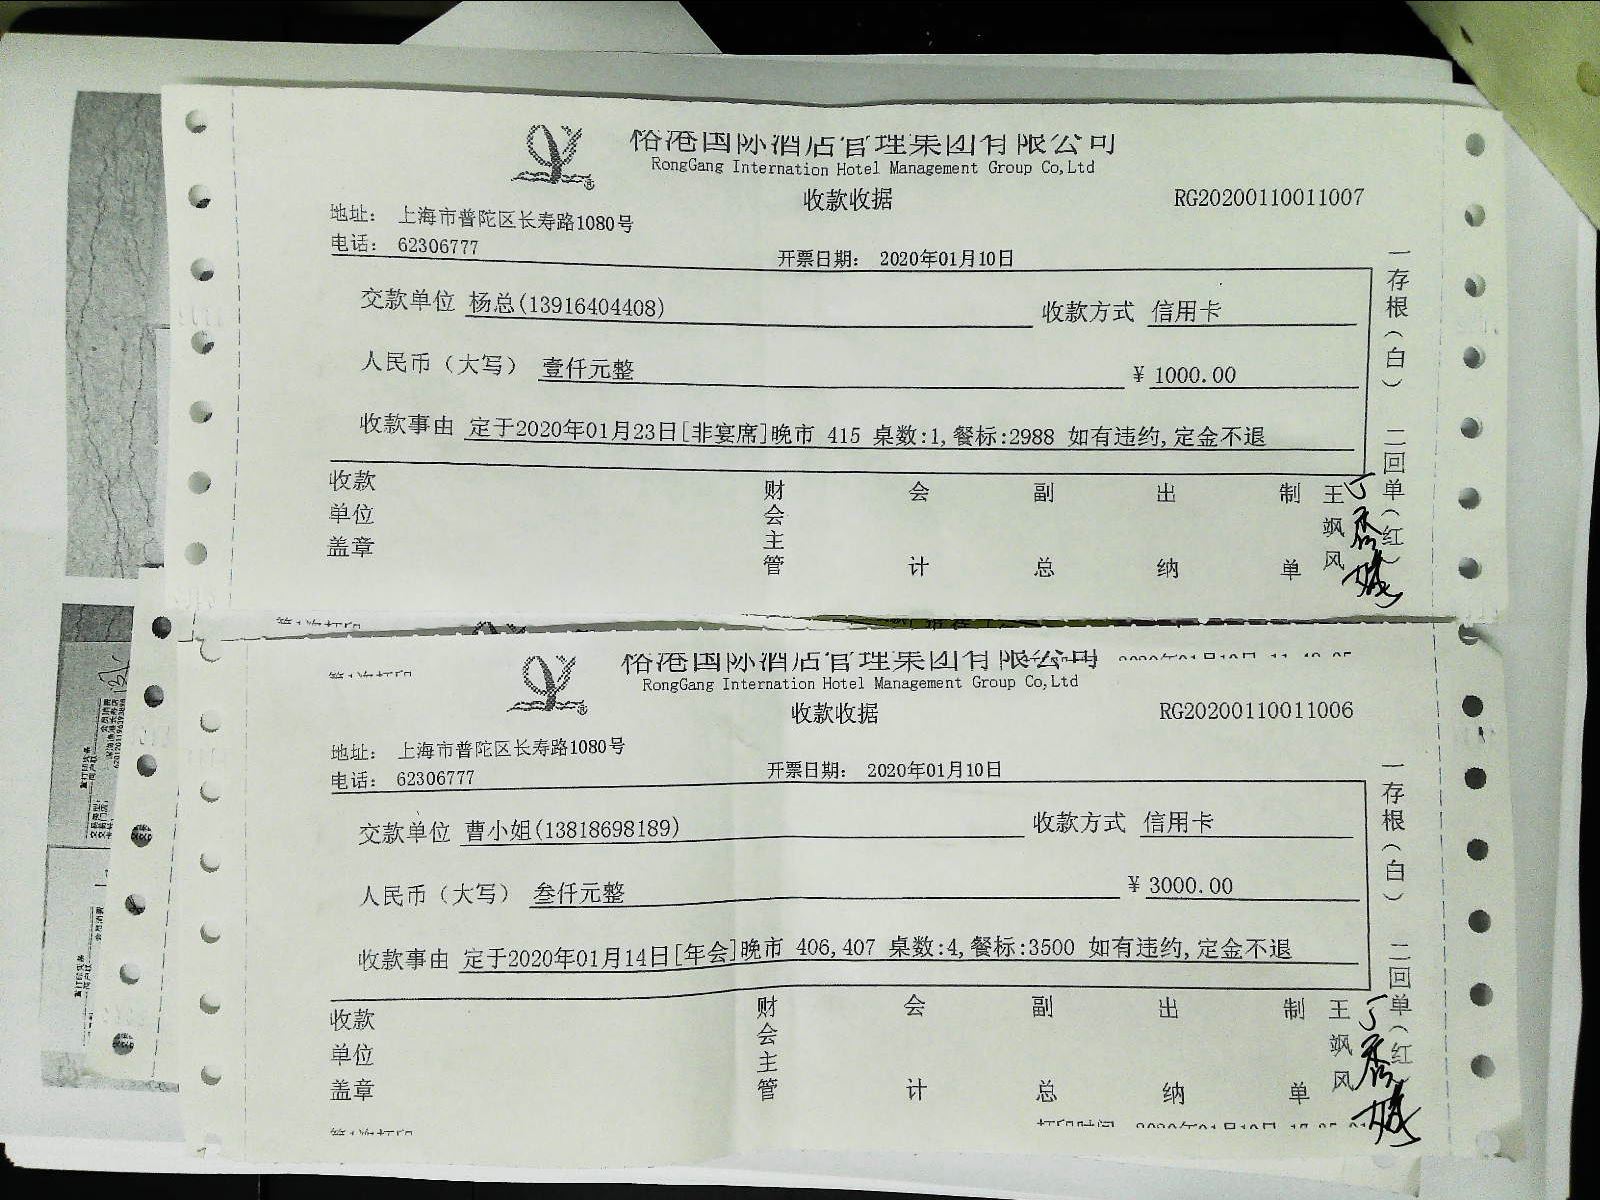 裕港国际酒店管理集团有限公司
RongGang Internation Hotel Management Group Co,Ltd
收款收据
RG20200110011007
地址： 上海市普陀区长寿路1080号
电话： 62306777
开票日期： 2020年01月10日
交款单位 杨总(13916404408) 收款方式 信用卡
人民币（大写） 壹仟元整 ￥ 1000.00
收款事由 定于2020年01月23日[非宴席]晚市 415 桌数:1,餐标:2988 如有违约,定金不退
收款单位盖章 财会主管 会计 副总 出纳 制单 王飒风
一存根（白） 二回单（红）
第1次打印
裕港国际酒店管理集团有限公司
RongGang Internation Hotel Management Group Co,Ltd
收款收据
RG20200110011006
地址： 上海市普陀区长寿路1080号
电话： 62306777
开票日期： 2020年01月10日
交款单位 曹小姐(13818698189) 收款方式 信用卡
人民币（大写） 叁仟元整 ￥ 3000.00
收款事由 定于2020年01月14日[年会]晚市 406,407 桌数:4,餐标:3500 如有违约,定金不退
收款单位盖章 财会主管 会计 副总 出纳 制单 王飒风
一存根（白） 二回单（红）
第1次打印
打印时间